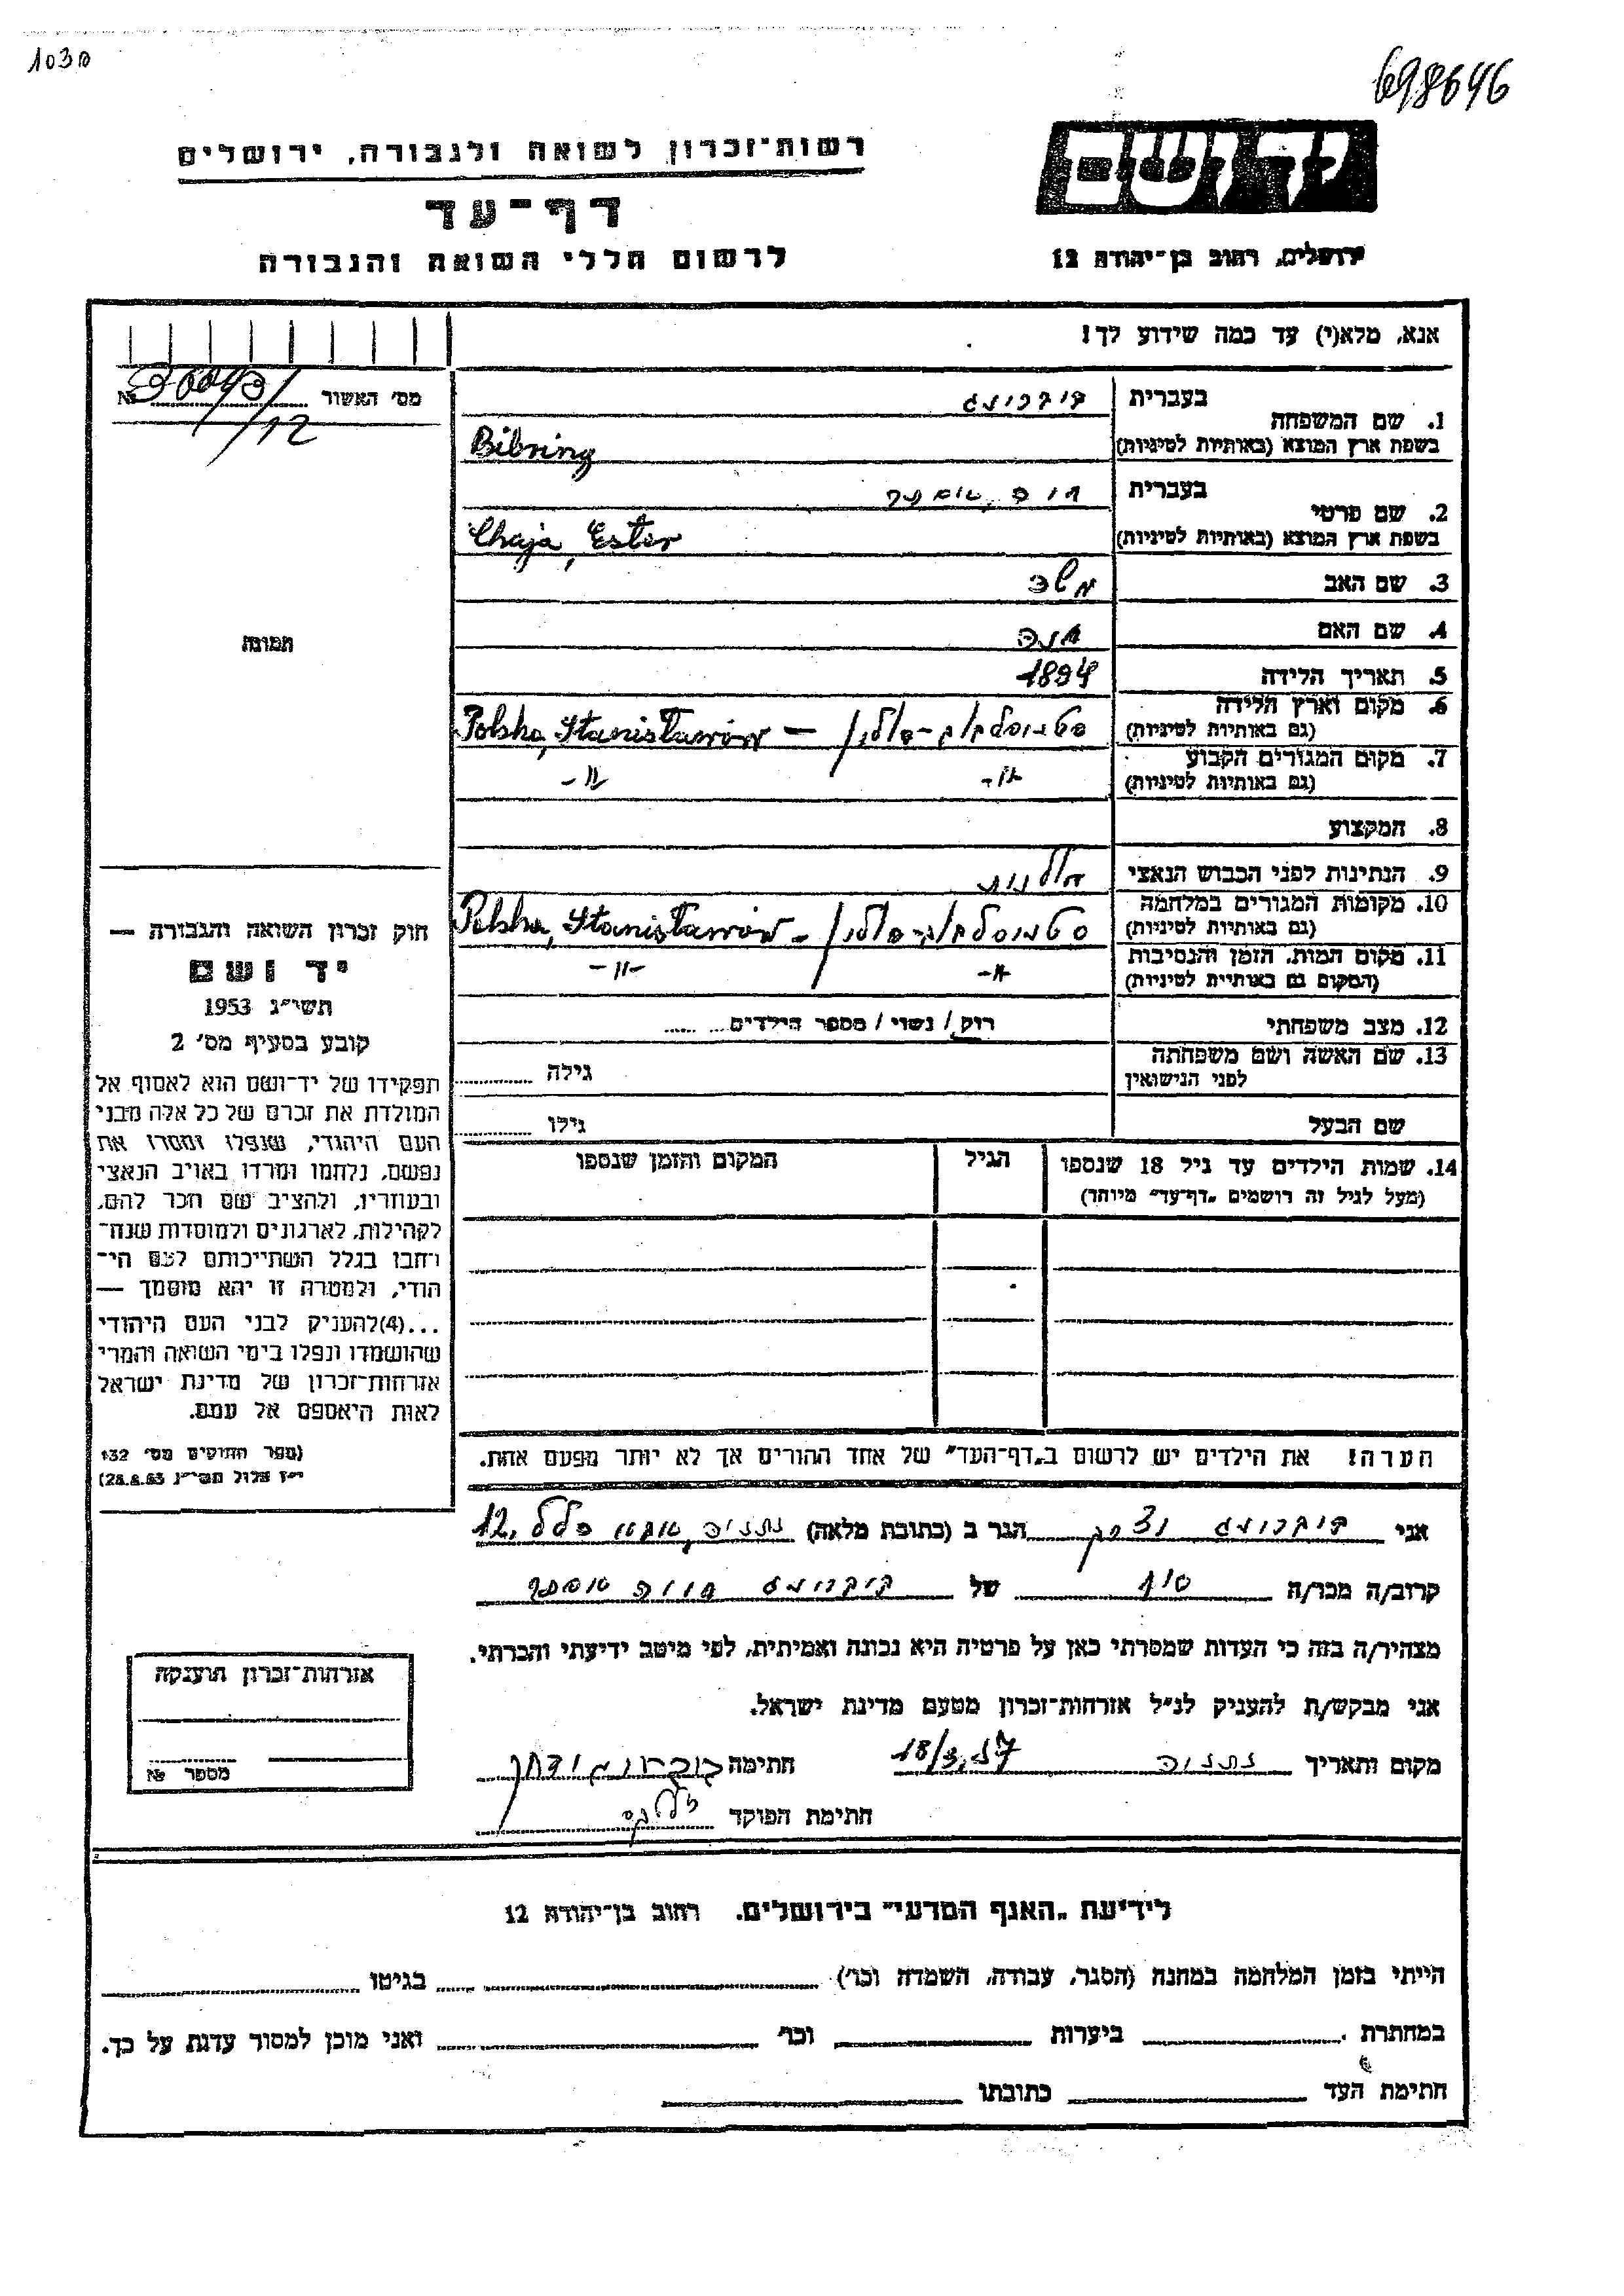 1030
698646
רשות־זכרון לשואה ולגבורה, ירושלים
יד ושם
דף־עד
לרשום חללי השואה והגבורה
ירושלים, רחוב בן־יהודה 12
אנא, מלא(י) עד כמה שידוע לך!
מס' האשור №
/12
בעברית
1. שם המשפחה
בשפת ארץ המוצא (באותיות לטיניות) Bibring
בעברית חיה, אסתר
2. שם פרטי
בשפת ארץ המוצא (באותיות לטיניות) Chaja, Ester
3. שם האב משה
תמונה
4. שם האם חנה
5. תאריך הלידה 1894
6. מקום וארץ הלידה
(גם באותיות לטיניות) סטניסלבוב-פולין / — Polska, Stanisławów
7. מקום המגורים הקבוע
(גם באותיות לטיניות) -"- -"-
8. המקצוע
9. הנתינות לפני הכבוש הנאצי פולנית
10. מקומות המגורים במלחמה
(גם באותיות לטיניות) סטניסלבוב-פולין / - Polska, Stanisławów
11. מקום המות, הזמן והנסיבות
(המקום גם באותיית לטיניות) -"- -"-
12. מצב משפחתי רווק / נשוי / מספר הילדים
13. שם האשה ושם משפחתה
לפני הנישואין גילה
שם הבעל גילו
14. שמות הילדים עד גיל 18 שנספו הגיל המקום והזמן שנספו
(מעל לגיל זה רושמים „דף־עד" מיוחד)
חוק זכרון השואה והגבורה —
יד ושם
תשי"ג 1953
קובע בסעיף מס' 2
תפקידו של יד־ושם הוא לאסוף אל
המולדת את זכרם של כל אלה מבני
העם היהודי, שנפלו ומסרו את
נפשם, נלחמו ומרדו באויב הנאצי
ובעוזריו, ולהציב שם וזכר להם,
לקהילות, לארגונים ולמוסדות שנח־
רחבו בגלל השתייכותם לעם הי־
הודי, ולמטרה זו יהא מוסמך —
...(4)להעניק לבני העם היהודי
שהושמדו ונפלו בימי השואה והמרי
אזרחות־זכרון של מדינת ישראל
לאות היאספם אל עמם.
(ספר החוקים מס' 132
י"ז אלול תשי"ג 28.8.53)
הערה! את הילדים יש לרשום ב„דף־העד" של אחד ההורים אך לא יותר מפעם אחת.
אני ביברינג הגר ב (כתובת מלאה) נתניה, 12.
קרוב/ה מכר/ה של ביברינג חיה אסתר
מצהיר/ה בזה כי העדות שמסרתי כאן על פרטיה היא נכונה ואמיתית, לפי מיטב ידיעתי והכרתי.
אני מבקש/ת להעניק לנ"ל אזרחות־זכרון מטעם מדינת ישראל.
מקום ותאריך נתניה 18/3.57 חתימה
חתימת הפוקד
אזרחות־זכרון הוענקה
מספר №
לידיעת „האגף המדעי" בירושלים, רחוב בן־יהודה 12
הייתי בזמן המלחמה במחנה (הסגר, עבודה, השמדה וכו') בגיטו
במחתרת ביערות וכו' ואני מוכן למסור עדות על כך.
חתימת העד כתובתו